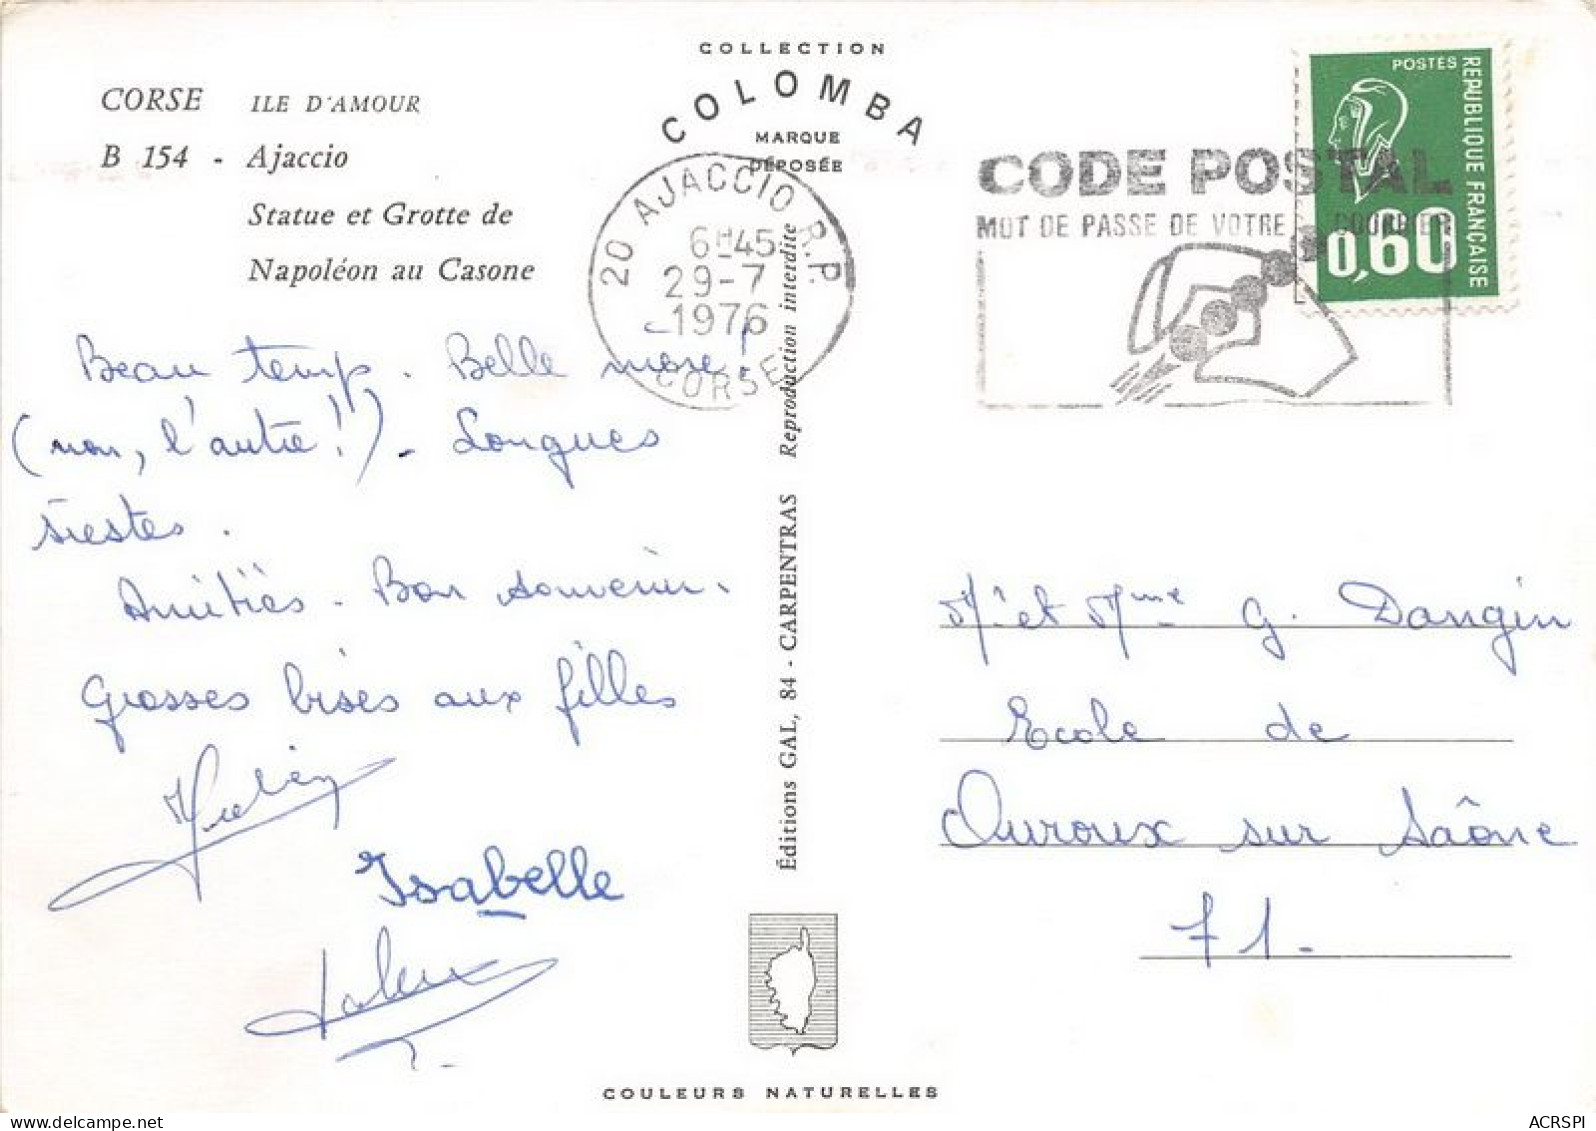 COLLECTION
COLOMBA
MARQUE
DÉPOSÉE
CORSE ILE D'AMOUR
B 154 - Ajaccio
Statue et Grotte de
Napoléon au Casone
20 AJACCIO R.P.
6H45
29-7
1976
CORSE
CODE POSTAL
MOT DE PASSE DE VOTRE COURRIER
POSTES
REPUBLIQUE FRANÇAISE
0,60
Beau temps. Belle mare!
(non, l'autre!) - Longues
siestes.
Amitiés. Bon souvenir.
Grosses bises aux filles
Isabelle
Reproduction interdite
Éditions GAL, 84 - CARPENTRAS
Mr et Mme G. Dangin
Ecole de
Ouroux sur Saône
71.
COULEURS NATURELLES
ACRSPI